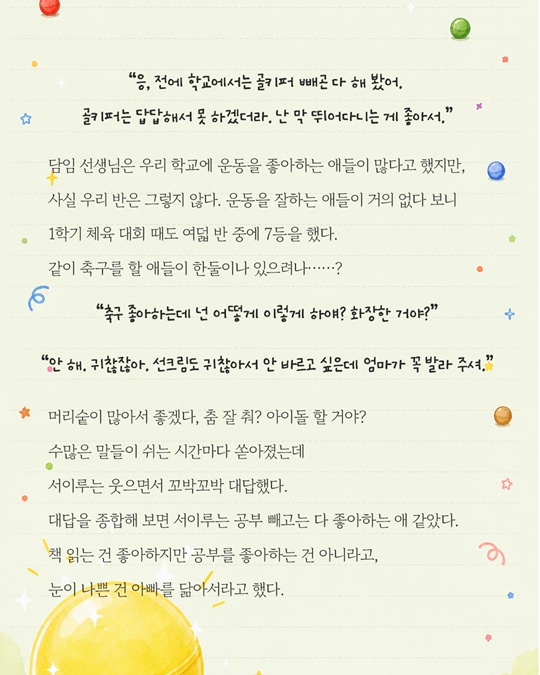 “응, 전에 학교에서는 골키퍼 빼곤 다 해 봤어.
골키퍼는 답답해서 못 하겠더라. 난 막 뛰어다니는 게 좋아서.”
담임 선생님은 우리 학교에 운동을 좋아하는 애들이 많다고 했지만,
사실 우리 반은 그렇지 않다. 운동을 잘하는 애들이 거의 없다 보니
1학기 체육 대회 때도 여덟 반 중에 7등을 했다.
같이 축구를 할 애들이 한둘이나 있으려나……?
“축구 좋아하는데 넌 어떻게 이렇게 하얘? 화장한 거야?”
“안 해. 귀찮잖아. 선크림도 귀찮아서 안 바르고 싶은데 엄마가 꼭 발라 주셔.”
머리숱이 많아서 좋겠다, 춤 잘 춰? 아이돌 할 거야?
수많은 말들이 쉬는 시간마다 쏟아졌는데
서이루는 웃으면서 꼬박꼬박 대답했다.
대답을 종합해 보면 서이루는 공부 빼고는 다 좋아하는 애 같았다.
책 읽는 건 좋아하지만 공부를 좋아하는 건 아니라고,
눈이 나쁜 건 아빠를 닮아서라고 했다.